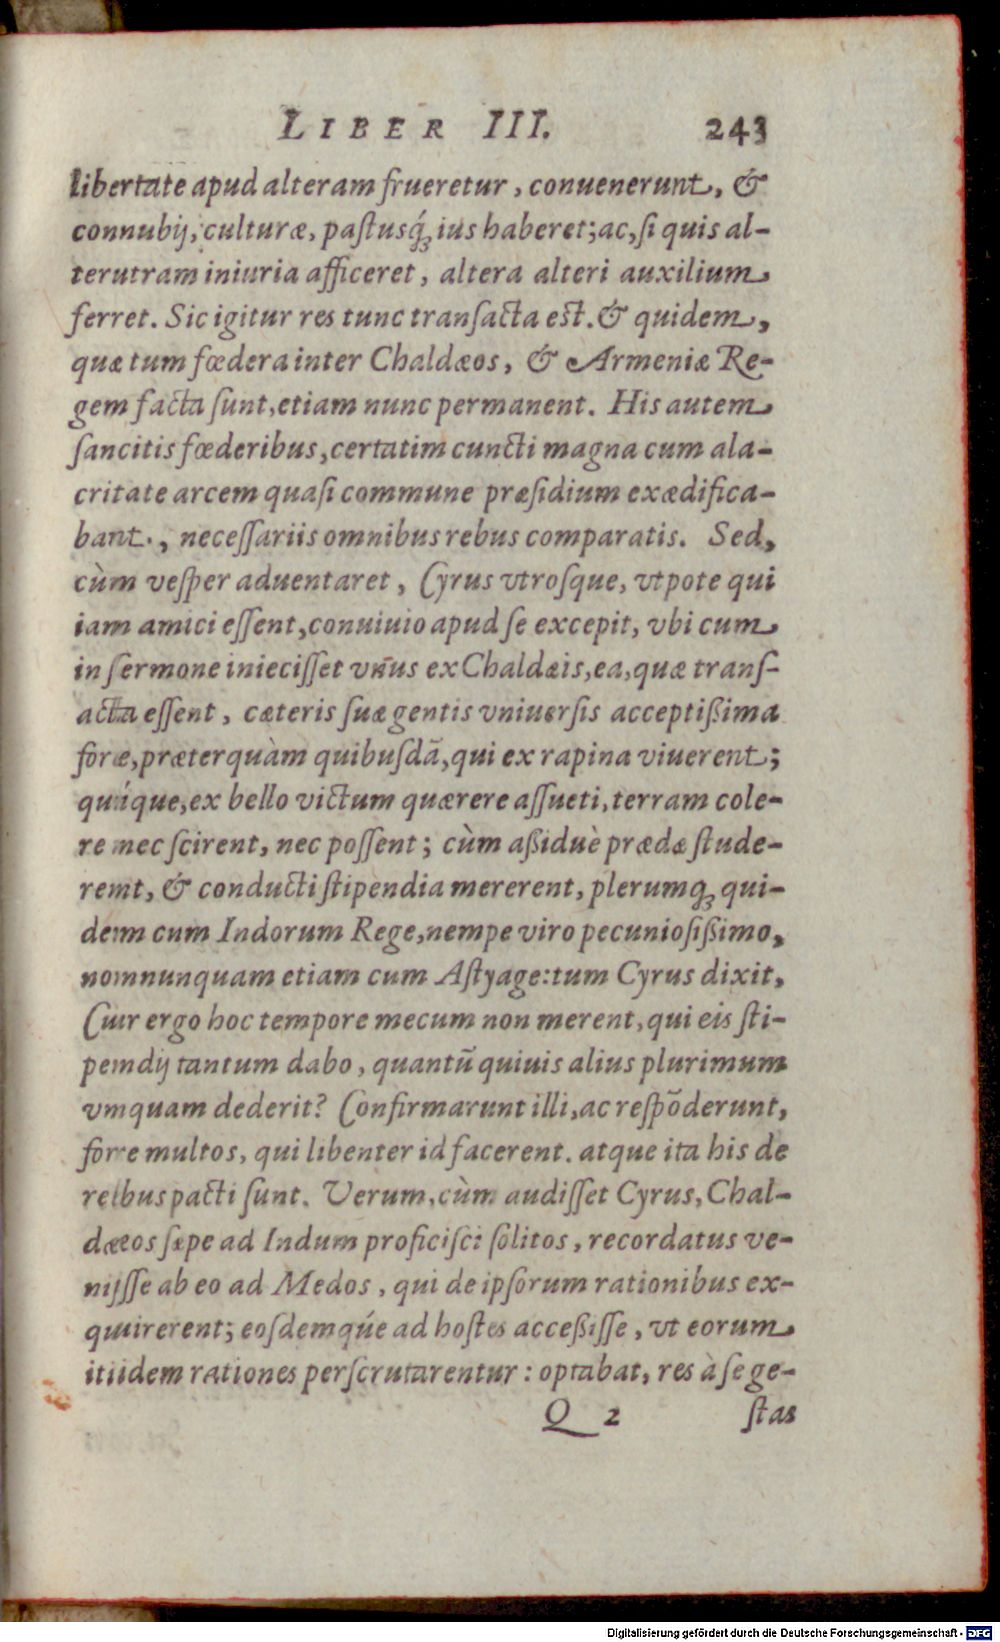 LIBER III. 243
libertate apud alteram frueretur, conuenerunt, &
connubij, culturæ, pastusq́ꝫ ius haberet; ac, si quis al-
terutram iniuria afficeret, altera alteri auxilium
ferret. Sic igitur res tunc transacta est. & quidem,
quæ tum fœdera inter Chaldæos, & Armeniæ Re-
gem facta sunt, etiam nunc permanent. His autem
sancitis fœderibus, certatim cuncti magna cum ala-
critate arcem quasi commune præsidium exædifica-
bant, necessariis omnibus rebus comparatis. Sed,
cùm vesper aduentaret, Cyrus vtrosque, vtpote qui
iam amici essent, conuiuio apud se excepit, vbi cum
in sermone iniecisset vnus ex Chaldæis, ea, quæ trans-
acta essent, cæteris suæ gentis vniuersis acceptißima
foræ, præterquàm quibusdā, qui ex rapina viuerent;
quíque, ex bello victum quærere assueti, terram cole-
re nec scirent, nec possent; cùm aßiduè prædæ stude-
rent, & conducti stipendia mererent, plerumqꝫ qui-
dem cum Indorum Rege, nempe viro pecuniosißimo,
nonnunquam etiam cum Astyage: tum Cyrus dixit,
Cur ergo hoc tempore mecum non merent, qui eis sti-
pendij tantum dabo, quantū quiuis alius plurimum
vmquam dederit? Confirmarunt illi, ac respōderunt,
fore multos, qui libenter id facerent. atque ita his de
rebus pacti sunt. Verum, cùm audisset Cyrus, Chal-
dæos sæpe ad Indum proficisci solitos, recordatus ve-
nijsse ab eo ad Medos, qui de ipsorum rationibus ex-
quirerent; eosdemq́ue ad hostes acceßisse, vt eorum
itidem rationes perscrutarentur: optabat, res à se ge-
Q 2 stas
Digitalisierung gefördert durch die Deutsche Forschungsgemeinschaft - DFG